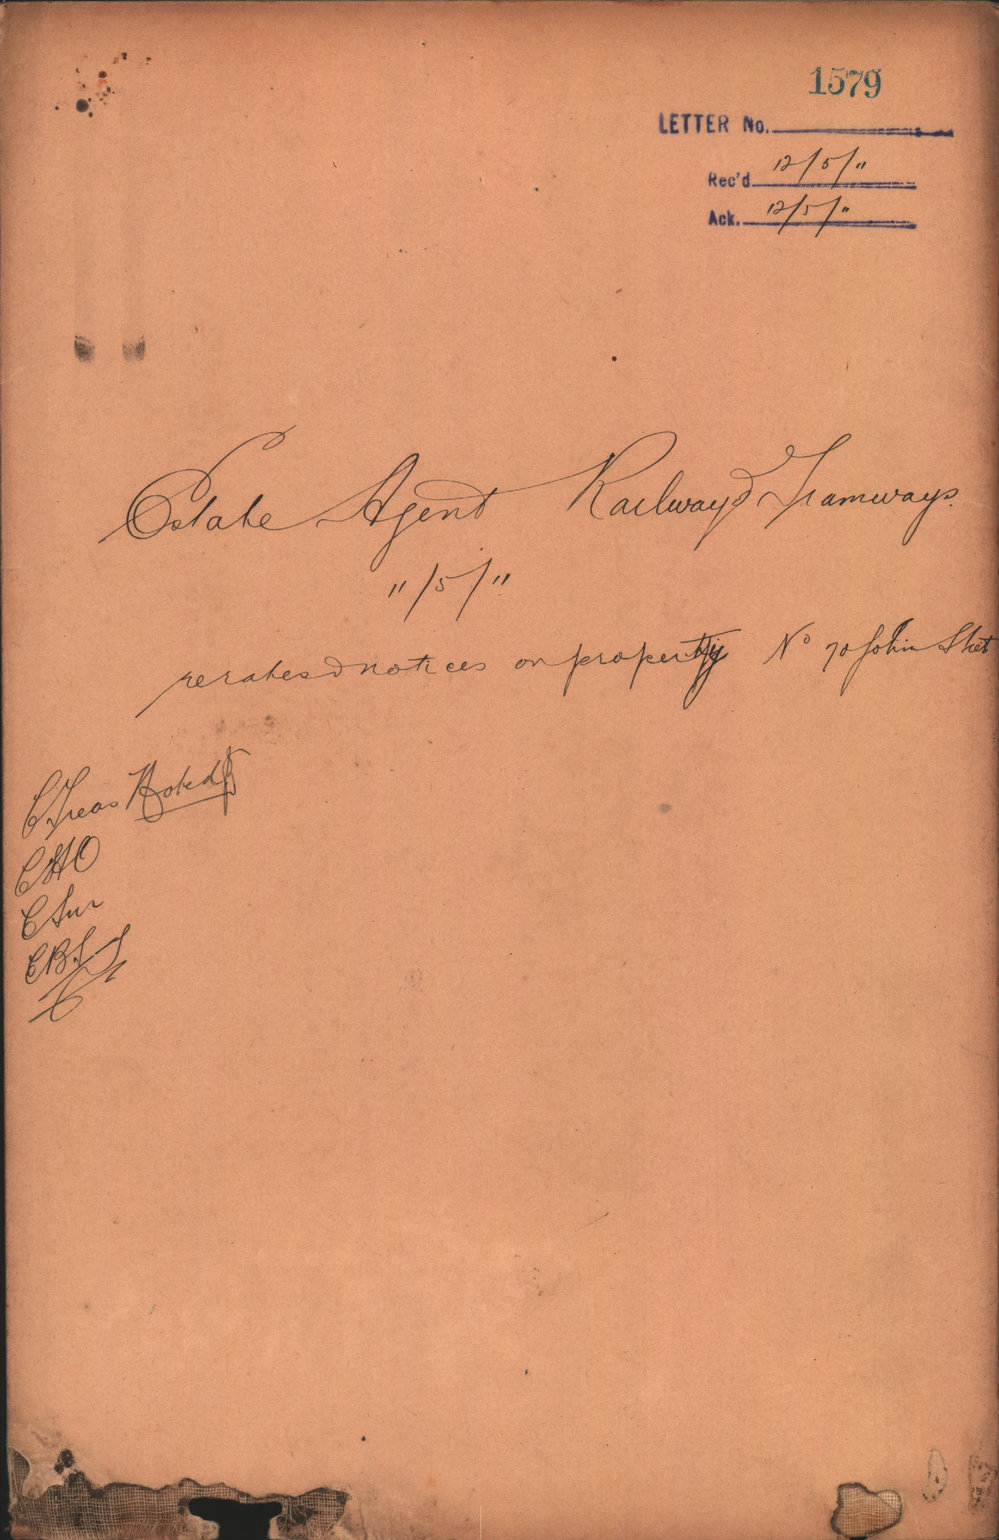 1579
LETTER No.
Rec'd 12/5/11
Ack. 12/5/11
Estate Agent Railway & Tramways.
11/5/11
re rates & notices on property No 70 John Street
C Treas Noted
CHO
C Sur
CBS